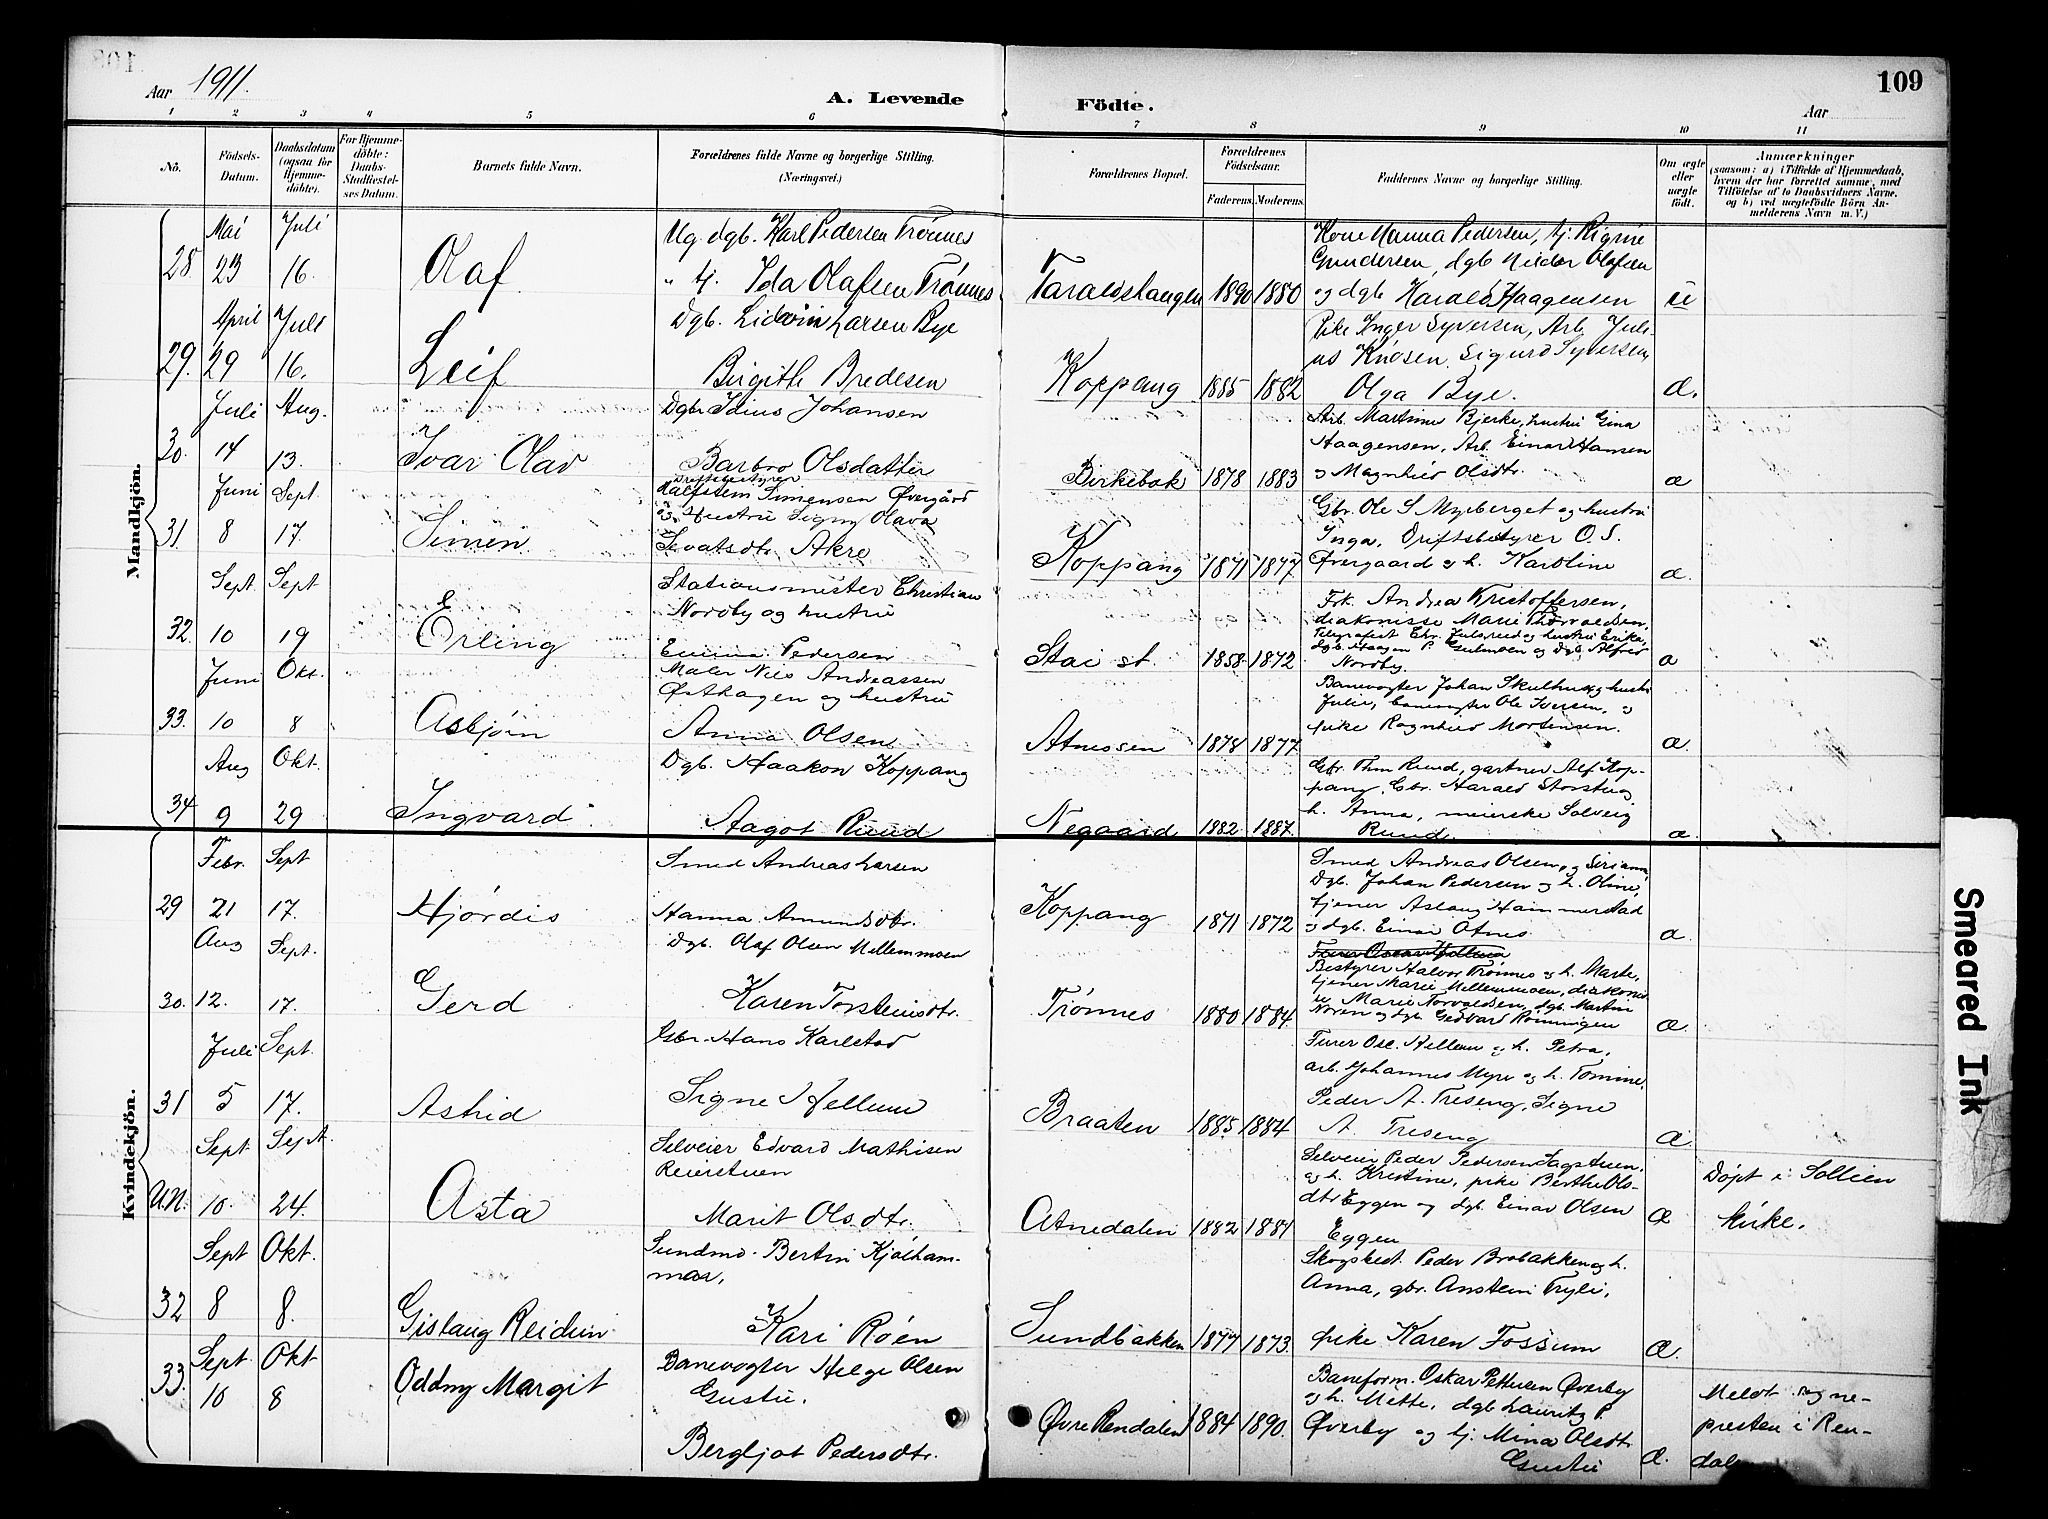 109
Aar 1911.
A. Levende Födte.
Aar
1 2 3 4 5 6 7 8 9 10 11
No.
Födsels-Datum.
Daabsdatum (ogsaa for Hjemme-döbte).
For Hjemme-döbte: Daabs-Stadfæstel-ses Datum.
Barnets fulde Navn.
Forældrenes fulde Navne og borgerlige Stilling.
(Næringsvei.)
Forældrenes Bopæl.
Forældrenes Födselsaar.
Faderens. Moderens.
Faddernes Navne og borgerlige Stilling.
Om ægte eller uægte födt.
Anmærkninger
(saasom: a) i Tilfælde af Hjemmedaab, hvem der har forrettet samme, med Tilföielse af to Daabsvidners Navne, og b) ved uægtefödte Börn An-melderens Navn m. V.)
Mandkjön.
28 Mai 23 Juli 16. Olaf
Ug. dgb. Karl Pedersen Trønnes
" tj. Ida Olafsen Trønnes
Taraldstangen 1890 1880
Kone Hanna Pedersen, tj.
Gundersen, dgb Olafsen
og dgb Harald Haagensen
29. April 29 Juli 16. Leif
Dgb. Lidvin Larsen Bye
Birgithe Bredesen
Koppang 1885 1882
Pike Inger Syversen, Arb. Juli-
us Knosen, Sigurd Syversen,
Olga Bye. æ.
30. Juli 14 Aug. 13. Ivar Olav
Dgbr Idius Johansen
Barbro Olsdatter
Birkebak 1878 1883
Arb. Martinus Bjerke, hustru Gina
Haagensen, Arb. Einar Hansen
og Magnhild Olsdtr. æ
31. Juni 8 Sept. 17. Simen
Driftsbestyrer
Halfstein Simensen Øvergård
og Hustru Signy Olava
Sevatsdtr Akre
Koppang 1871 1877
Gbr. Ole S Myrberget og hustru
Inga, Driftsbstyrer O. S.
Øvergaard og h. Karoline æ.
32. Sept. 10 Sept 19 Erling
Stationsmester Christian
Nordby og hustru
Emma Pedersen
Stai st. 1858 1872
Frk. Andrea Kristoffersen,
diakonisse Marie Thorvaldsen,
Telegrafist Chr. Julsrud og hustru Erika,
dgb. Haagen P. og dgb. Alfred
Nordby æ
33. Juni 10 Okt. 8 Asbjørn
Maler Nils Andreassen
Østhagen og hustru
Anna Olsen
Atnaosen 1878 1877
Banevogter Johan Skulhus og hustru
Julie, banevogter Ole Iversen, og
pike Ragnhild Mortensen. æ.
34 Aug 9 Okt. 29 Ingvard
Dgb. Haakon Koppang
Aagot Ruud
Negaard 1882 1887
Gbr. Thm Ruud, gartner Alf Kop-
pang, Gbr. Harald Storstug
h. Anna, meierske Solveig
Ruud. æ
Kvindekjön.
29 Febr. 21 Sept 17. Hjørdis
Smed Andreas Larsen
Hanna Amundsdtr.
Koppang 1871 1872
Smed Andreas Olsen, og Sirianna
Dgb. Johan Pedersen og h. Oline,
tjener Aslaug Hammerstad
og dgb. Einar Atnes æ
30. Aug 12. Sept. 17. Gerd
Dgb. Olaf Olsen Mellemmoen
Karen Torsteinsdtr.
Trønnes 1880 1884
Furer Oscar Hellum
Bestyrer Halvor Trønnes og h. Marte,
tjener Marie Mellemmoen, diakonis-
se Marie Torvaldsen, dgb. Martin
Noren og dgb. Gedvard Rønningen æ
31 Juli 5 Sept. 17. Astrid
Gbr. Hans Karlstad
Signe Hellum
Braaten 1885 1884
Furer Osc. Hellum og h. Petra,
arb. Johannes Myre og h. Tomine,
Peder A. Treseng, Signe
A. Treseng æ
U.N. Sept. 10. Sept. 24. Asta
Selveier Edvard Mathisen
Reierstuen
Marit Olsdtr.
Atnedalen 1882 1881
Selveier Peder Pedersen Fagstuen,
og h. Kristine, pike Berthe Ols-
dtr Eggen og dgb. Einar Olsen
Eggen æ
Døpt i Sollien
kirke.
32 Sept 8 Okt. 8. Gislaug Reidun
Sundmd. Bertin Kjølham-
mar,
Kari Røen
Sundbakken 1877 1873.
Skogsbest. Peder Brobakken og h.
Anna, gbr. Anstein Tryli,
pike Karen Fossum æ.
33. Sept 10 Okt 8 Oddny Margit
Banevogter Helge Olsen
Gustu.
Bergljot Pedersdtr.
Øvre Rendalen 1884 1890.
Baneform. Oskar Pettersen Øverby
og h. Mette, dgb Lauritz P.
Øverby og tj. Mina Olsdtr
Gustu æ.
Meldt sogne-
presten i Ren-
dalen
Smeared Ink